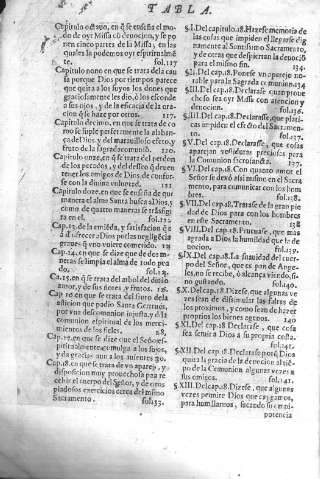 TABLA.
Capitulo octavo, en q̃ se enseña el mo-
do de oyr Missa cõ devocion, y se po
nen cinco partes de la Missa, en las
quales la podemos oyr espiritualmẽ
te. fol.117
Capitulo nono en que se trata de la cau
sa porque Dios por tiempos parece
que quita a los suyos los dones que
graciosamente les dio, ò les esconde
a sus ojos, y de la eficacia de la ora
cion q̃ se haze por otros. 117
Capitulo decimo, en que se trata de co
mo se suple perfectamente la alaban-
ça del Dios, y del maravilloso efeto, y
fruto de la sagrada comuniõ. 120
Capitulo onze, en q̃ se trata del perdon
de los pecados, y del desseo q̃ deven
tener los amigos de Dios, de confor-
se con la divina volũtad. 121
Capitulo doze, en que se enseña de que
manera el alma Santa busca a Dios, y
como de quatro maneras se trãsfigu
ra en el. fol.122
Cap.13. de la emiẽda, y satisfacion q̃
à d ofrecer a Dios por las negligẽcias
graves q̃ uno uviere comerido. 123
Cap.14. en que se dize que de dos ma-
neras se limpia el alma de todo peca
do. fol.124
Ca.15. en q̃ se trata del arbol del divino
amor, y de sus flores y frutos. 126
Cap 16 en que se trata del fuero de la
aflicion que padio Santa Gertrudis,
por una descomunion injusta, y de la
comunion espiritual de los mereci-
mientos de los fieles. 28
Cap.17. en q̃ se dize que el Señor es-
piritualmente comulga a los suyos,
y da gracias aun a los ausentes 30
Cap.18. en que se trata de un aparejo, y
disposicion muy provechosa para re
cebir el cuerpo del Señor, y de otros
piadosos exercicios cerca del mismo
Sacramento. fol.133.
§ I. Del capitulo.18. Haze memoria de
las cosas que impiden el llegarse dig
namente al Santissimo Sacramento,
y de otras que despiertan la devoció
para el mismo fin. 134.
§ II. Del cap.18. Pone se un aparejo no-
table para la Sagrada comunion. 134
§ III. Del cap.18. Declarase cuan prove
choso sea oyr Missa con atencion y
devocion. fol.136.
§ IIII. Del cap.18. Declarase, que platic-
as impiden el efecto del Sacramen-
to. fol.137.
§ V. Del cap.18. Declarase, que cosas
aparejan vestiduras preciosas para
la Comunion sacrosancta. 127.
§ VI. Del cap.18. Con quanto amor el
Señor se dexò assi mismo en el Sacra
mento, para comunicar con los hom
bres. fol.138.
§ VII. Del cap.18. Tratase de la gran pie
dad de Dios para con los hombres
en este Sacramento. 138
§ VIII. Del cap.18. Pruevase, que mas
agrada a Dios la humildad que la de
vocion. fol.139.
§ IX. Del cap.18. La suavidad del cuer-
po del Señor, que es pan de Ange-
les, no se recibe, ò alcança viendo, si-
no gustando. fol.140.
§ X. Del cap.18. Dizese, que algunas ve
zes sean de dissimular las faltas de
los proximos, y como sean de hazer
proprios los bienes agenos. 240
§ XI. Del cap.18. Declarase, que cosa
sea servir a Dios a su propria costa.
fol.141.
§ XII. Del cap.18. Declarase porq̃ Dios
quita la gracia de la devocion al tiẽ-
po de la Comunion algunas vezes a
sus amigos. fol.141.
§ XIII. Del cap.18. Dizese, que algunas
vezes primere Dios que caygamos,
para humillarnos, sacando su omni
potencia